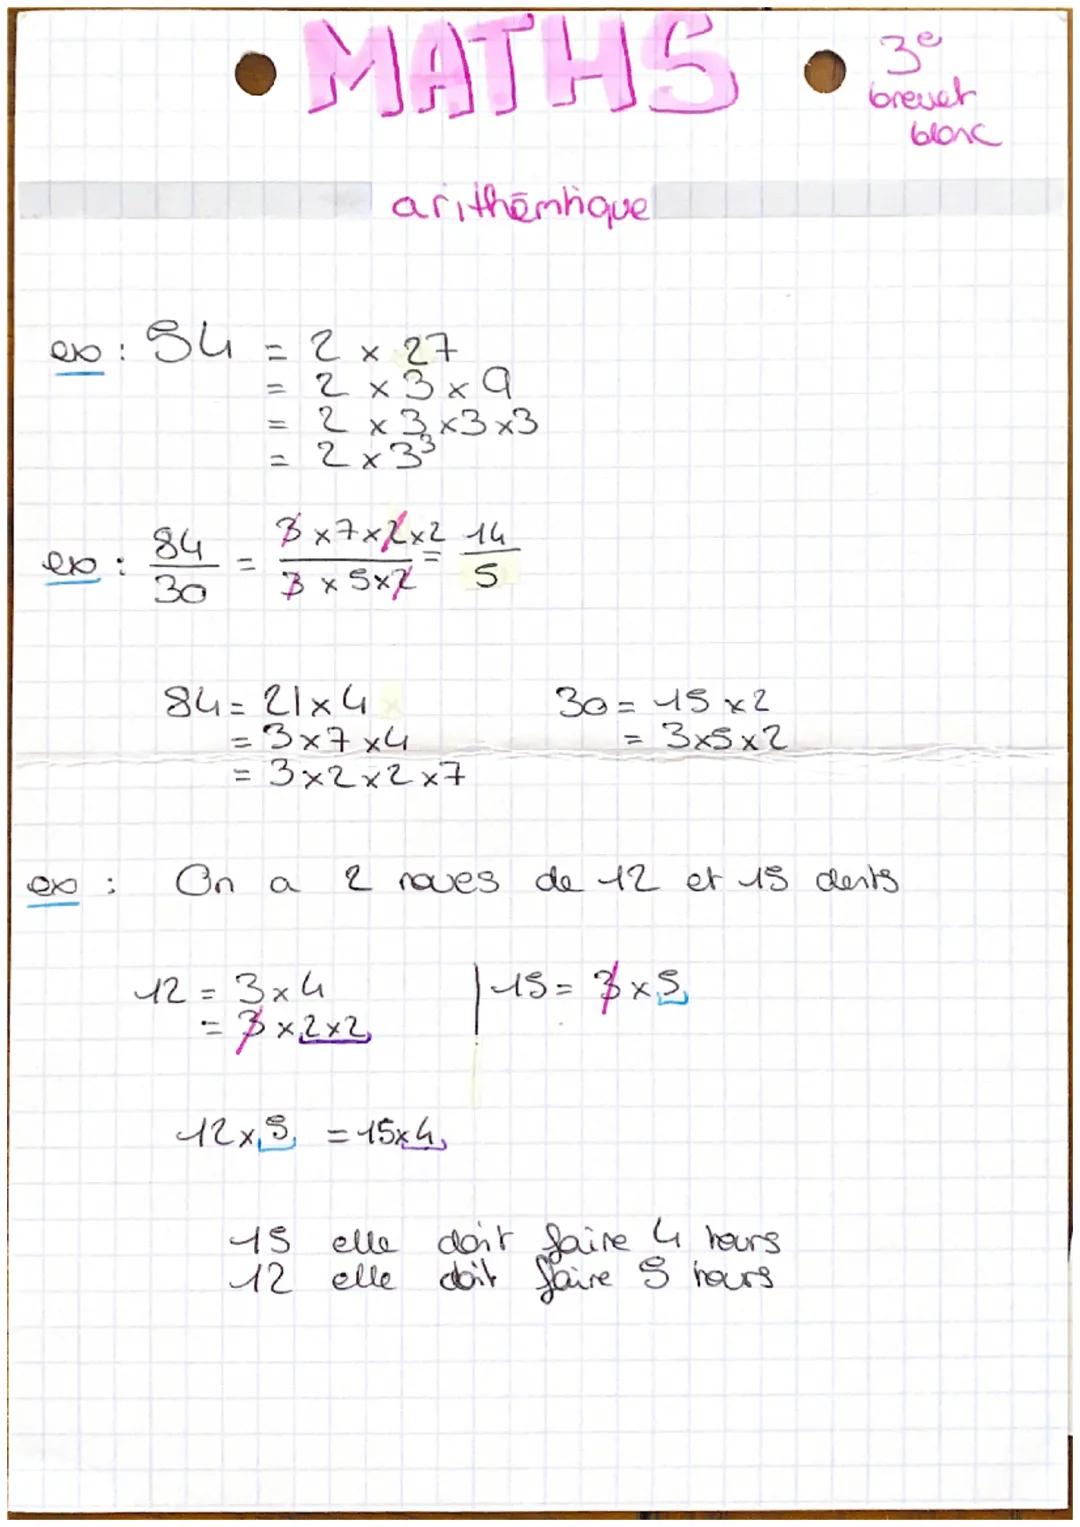 MATHS
3e
brevet
blanc
arithémtique
ex : 54 = 2 × 27
= 2 × 3 × 9
= 2 × 3 × 3 × 3
= 2 × 3³
ex : 84/30 = 3 × 7 × 2 × 2 / 3 × 5 × 2 = 14/5
84 = 21 × 4
30 = 15 × 2
= 3 × 7 × 4
= 3 × 5 × 2
= 3 × 2 × 2 × 7
ex : On a 2 roues de 12 et 15 dents
12 = 3 × 4 | 15 = 3 × 5
= 3 × 2 × 2
12 × 5 = 15 × 4
15 elle doit faire 4 tours
12 elle doit faire 5 tours